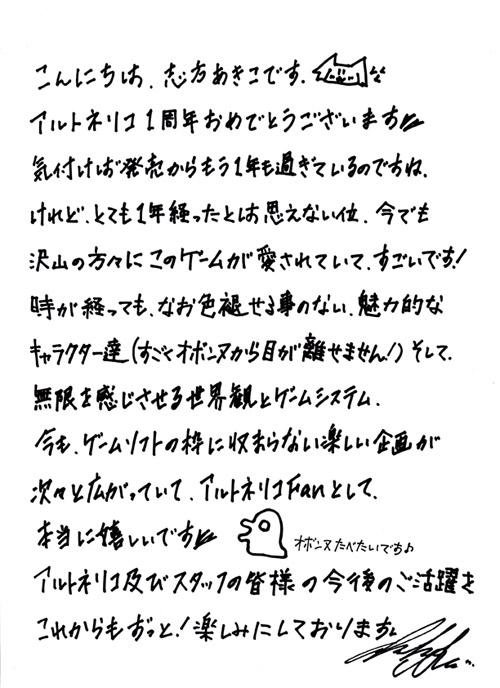 こんにちは、志方あきこです。
アルトネリコ1周年おめでとうございます
気付けば発売からもう1年も過ぎているのですね。
けれど、とても1年経ったとは思えない位、今でも
沢山の方々にこのゲームが愛されていて、すごいです!
時が経っても、なお色褪せる事のない、魅力的な
キャラクター達(すごくオボンヌから目が離せません!)そして、
無限を感じさせる世界観とゲームシステム。
今も、ゲームソフトの枠に収まらない楽しい企画が
次々と広がっていて、アルトネリコFanとして、
本当に嬉しいです
オボンヌたべたいでち♪
アルトネリコ及びスタッフの皆様の今後のご活躍を
これからもずっと!楽しみにしております。